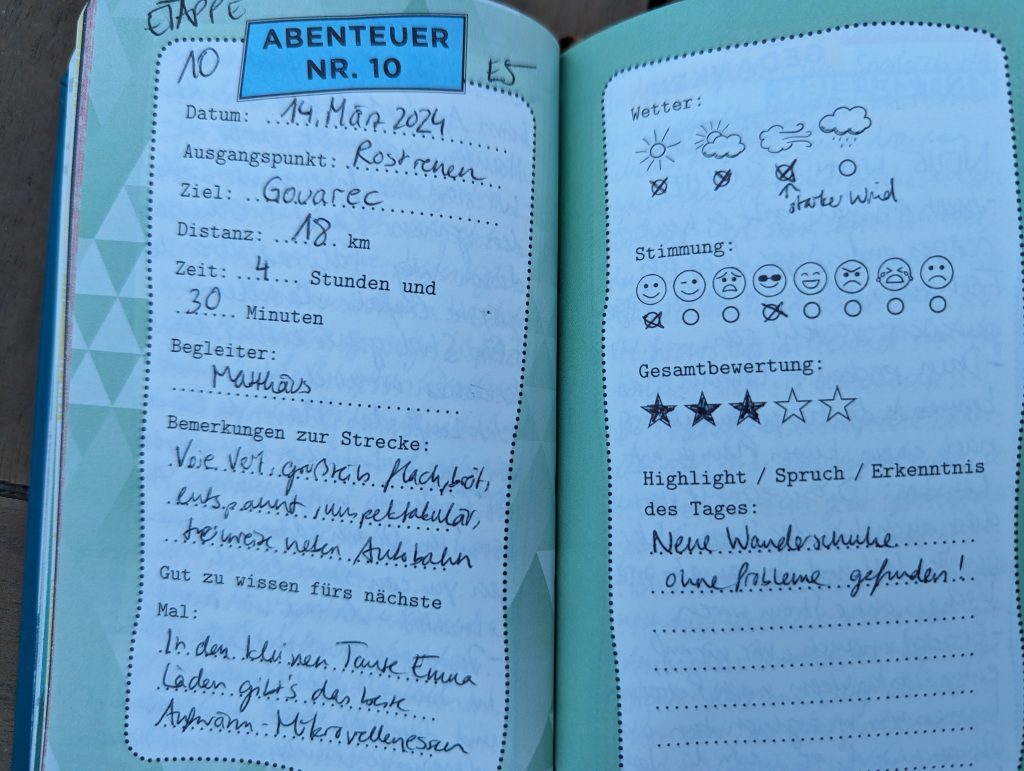 ETAPPE
10
ABENTEUER
NR. 10
E5
Datum: 14. März 2024
Ausgangspunkt: Rostrenen
Ziel: Gouarec
Distanz: 18 km
Zeit: 4 Stunden und
30 Minuten
Begleiter:
Matthäus
Bemerkungen zur Strecke:
Voie Vert, großteils flach, breit,
entspannt, unspektakulär,
teilweise neben Autobahn
Gut zu wissen fürs nächste
Mal:
In den kleinen Tante Emma
Läden gibt's das beste
Aufwärm-Mikrowellenessen
Wetter:
starker Wind
Stimmung:
Gesamtbewertung:
Highlight / Spruch / Erkenntnis
des Tages:
Neue Wanderschuhe
ohne Probleme gefunden!